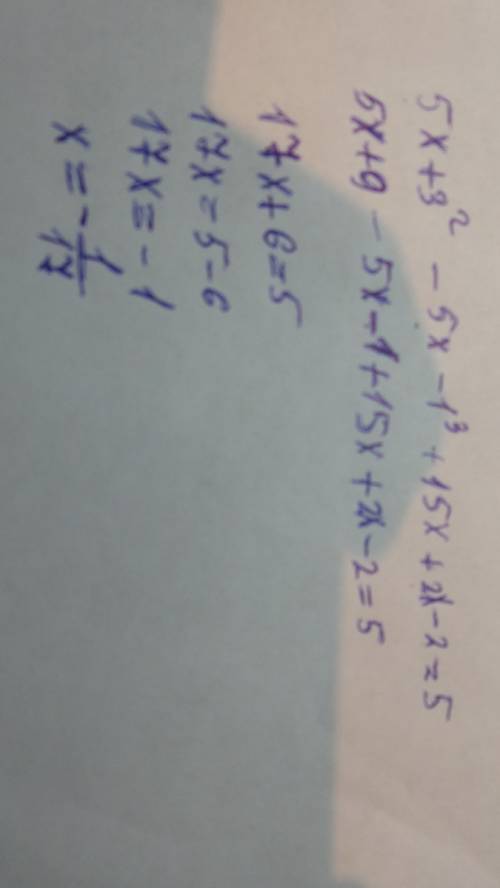 5x+3² - 5x - 1³ + 15x + 2x - 2 = 5
5x+9 - 5x - 1 + 15x + 2x - 2 = 5
17x + 6 = 5
17x = 5 - 6
17x = - 1
x = - 1/17